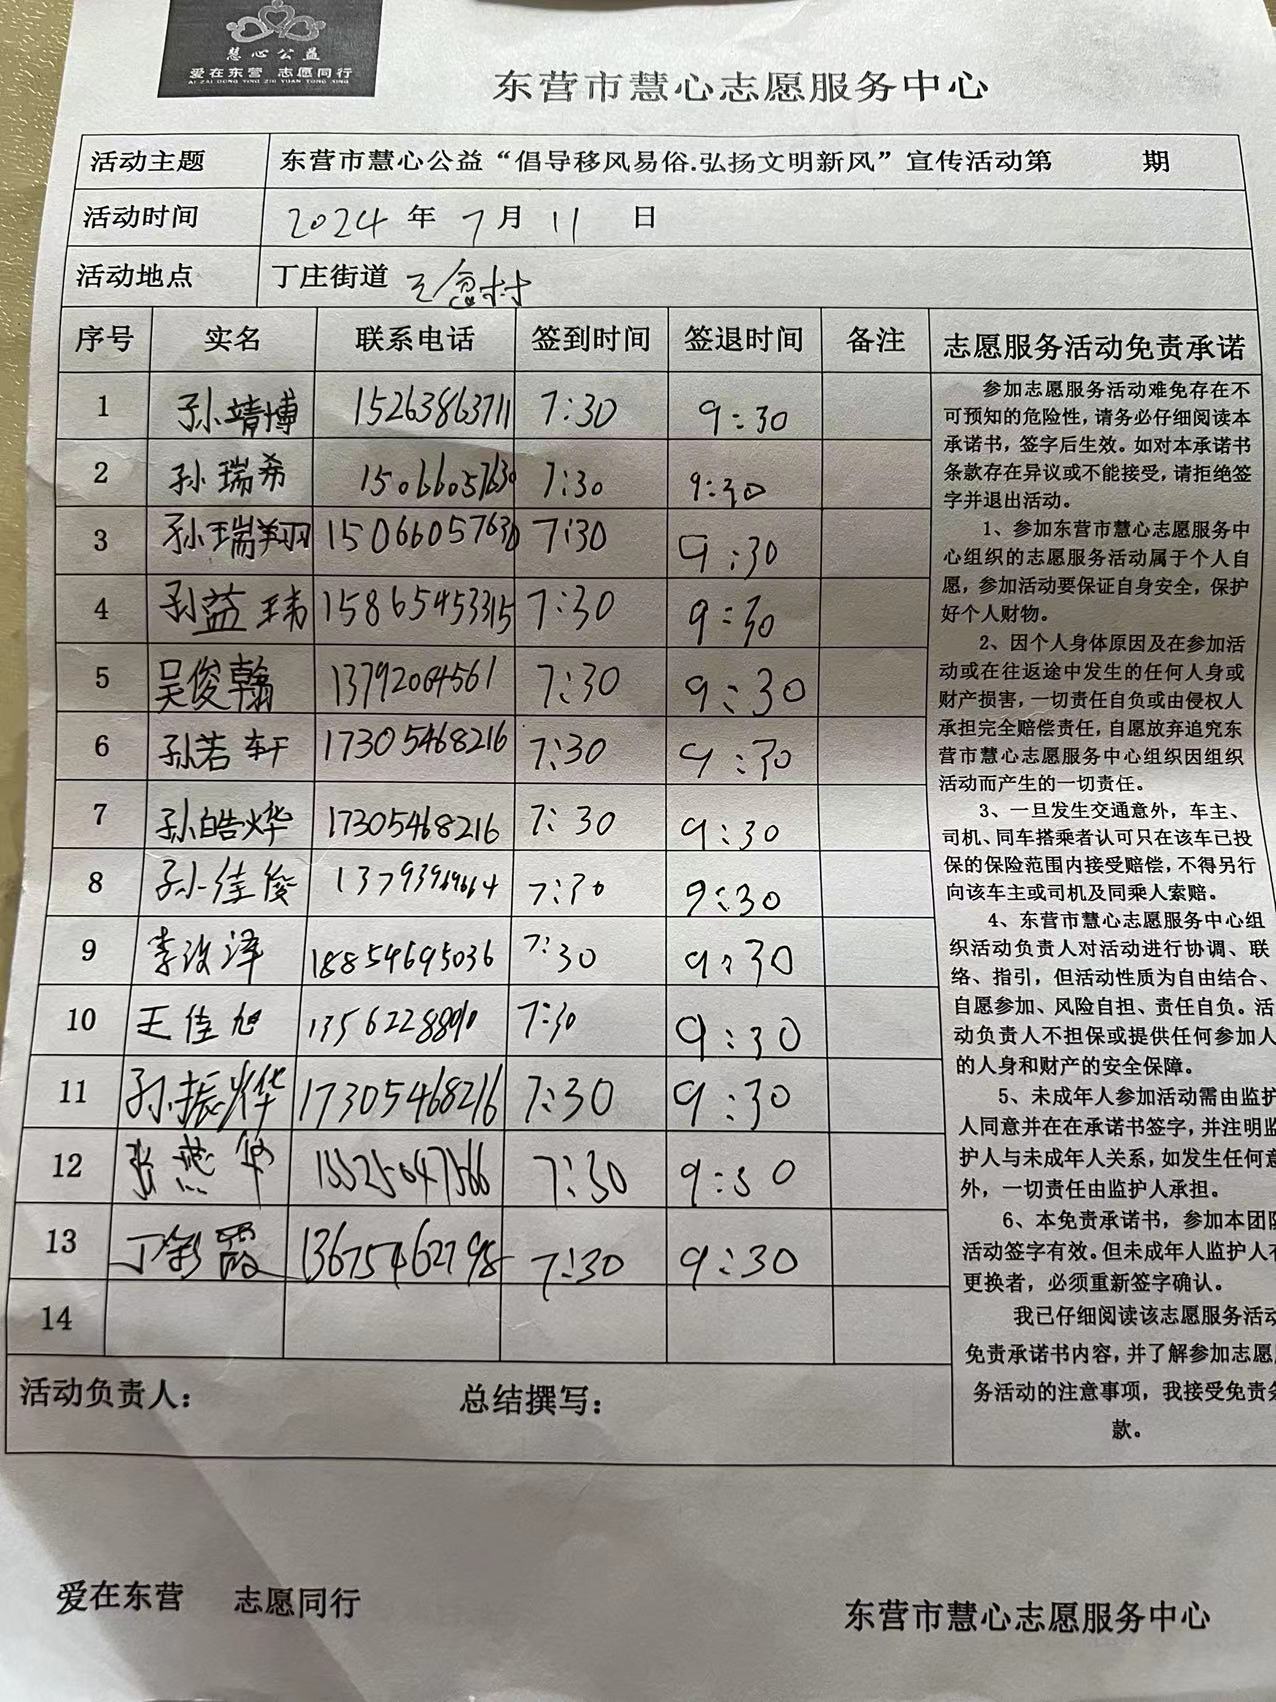 慧心公益
爱在东营 志愿同行
AI ZAI DONG YING ZHI YUAN TONG XING
东营市慧心志愿服务中心
活动主题 东营市慧心公益“倡导移风易俗.弘扬文明新风”宣传活动第 期
活动时间 2024 年 7 月 11 日
活动地点 丁庄街道 村
序号 实名 联系电话 签到时间 签退时间 备注
1 孙靖博 15263863711 7:30 9:30
2 孙瑞希 15066057630 7:30 9:30
3 孙瑞翔 15066057630 7:30 9:30
4 孙益玮 15865453315 7:30 9:30
5 吴俊翰 13792064561 7:30 9:30
6 孙若轩 17305468216 7:30 9:30
7 孙皓烨 17305468216 7:30 9:30
8 孙佳俊 7:30 9:30
9 李 泽 18854695036 7:30 9:30
10 王佳旭 7:30 9:30
11 孙振烨 17305468216 7:30 9:30
12 张燕 7:30 9:30
13 丁彩霞 13675462798 7:30 9:30
14
活动负责人： 总结撰写：
志愿服务活动免责承诺
参加志愿服务活动难免存在不
可预知的危险性，请务必仔细阅读本
承诺书，签字后生效。如对本承诺书
条款存在异议或不能接受，请拒绝签
字并退出活动。
1、参加东营市慧心志愿服务中
心组织的志愿服务活动属于个人自
愿，参加活动要保证自身安全，保护
好个人财物。
2、因个人身体原因及在参加活
动或在往返途中发生的任何人身或
财产损害，一切责任自负或由侵权人
承担完全赔偿责任，自愿放弃追究东
营市慧心志愿服务中心组织因组织
活动而产生的一切责任。
3、一旦发生交通意外，车主、
司机、同车搭乘者认可只在该车已投
保的保险范围内接受赔偿，不得另行
向该车主或司机及同乘人索赔。
4、东营市慧心志愿服务中心组
织活动负责人对活动进行协调、联
络、指引，但活动性质为自由结合、
自愿参加、风险自担、责任自负。活
动负责人不担保或提供任何参加人
的人身和财产的安全保障。
5、未成年人参加活动需由监护
人同意并在在承诺书签字，并注明监
护人与未成年人关系，如发生任何意
外，一切责任由监护人承担。
6、本免责承诺书，参加本团队
活动签字有效。但未成年人监护人有
更换者，必须重新签字确认。
我已仔细阅读该志愿服务活动
免责承诺书内容，并了解参加志愿服
务活动的注意事项，我接受免责条
款。
爱在东营 志愿同行
东营市慧心志愿服务中心